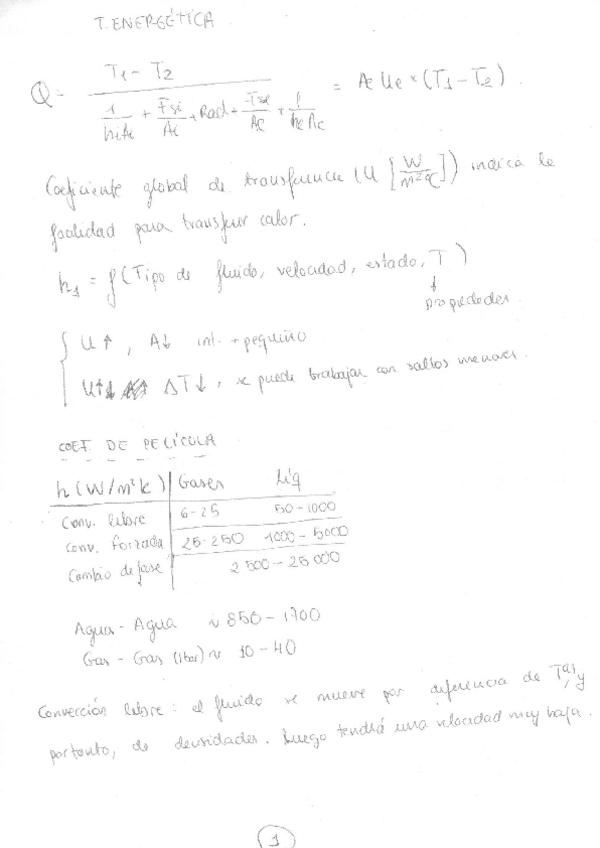 T. ENERGÉTICA
Q = (T1 - T2) / (1/hiAi + Fsi/Ai + Rad + Fse/Ae + 1/heAe) = Ae Ue × (T1 - T2)
Coeficiente global de transferencia (U [W/m²ºC]) indica la
facilidad para transferir calor.
h1 = f (Tipo de fluido, velocidad, estado, T)
↓
propiedades
{ U↑, A↓ int. + pequeño
ΔT↓, se puede trabajar con saltos menores.
COEF. DE PELÍCULA
h (W/m²k) | Gases Liq
Conv. libre 6-25 50-1000
Conv. forzada 25-250 1000-5000
Cambio de fase 2500-25000
Agua - Agua ~ 850-1700
Gas - Gas (1bar) ~ 10-40
Convección libre: el fluido se mueve por diferencia de Tas, y
portanto, de densidades. Luego tendrá una velocidad muy baja.
1